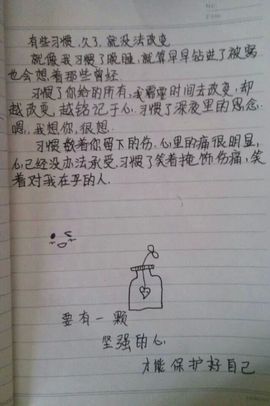 有些习惯,久了,就没法改变
就像我习惯了晚睡,就算早早钻进了被窝
也会想着那些曾经
习惯了你给的所有,我需要时间去改变,却
越改变,越铭记于心.习惯了深夜里的思念.
嗯,我想你,很想.
习惯数着你留下的伤,心里的痛很明显,
心已经没办法承受.习惯了笑着掩饰伤痛,笑
着对我在乎的人.
要有一颗
坚强的心
才能保护好自己